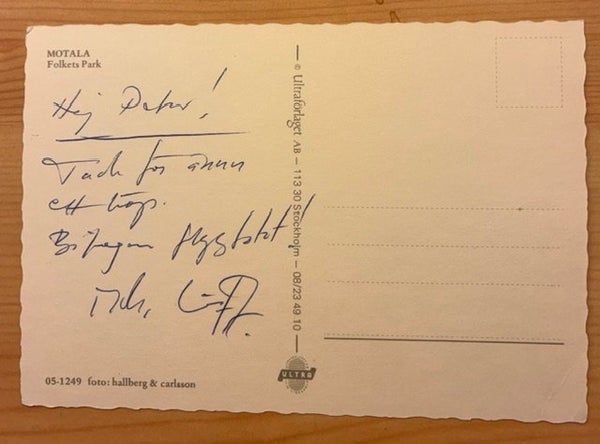 MOTALA
Folkets Park
Hej Peter!
Tack för ännu
ett köp.
Bifogar
© Ultraförlaget AB — 113 30 Stockholm — 08/23 49 10
ULTRA
05-1249 foto: hallberg & carlsson